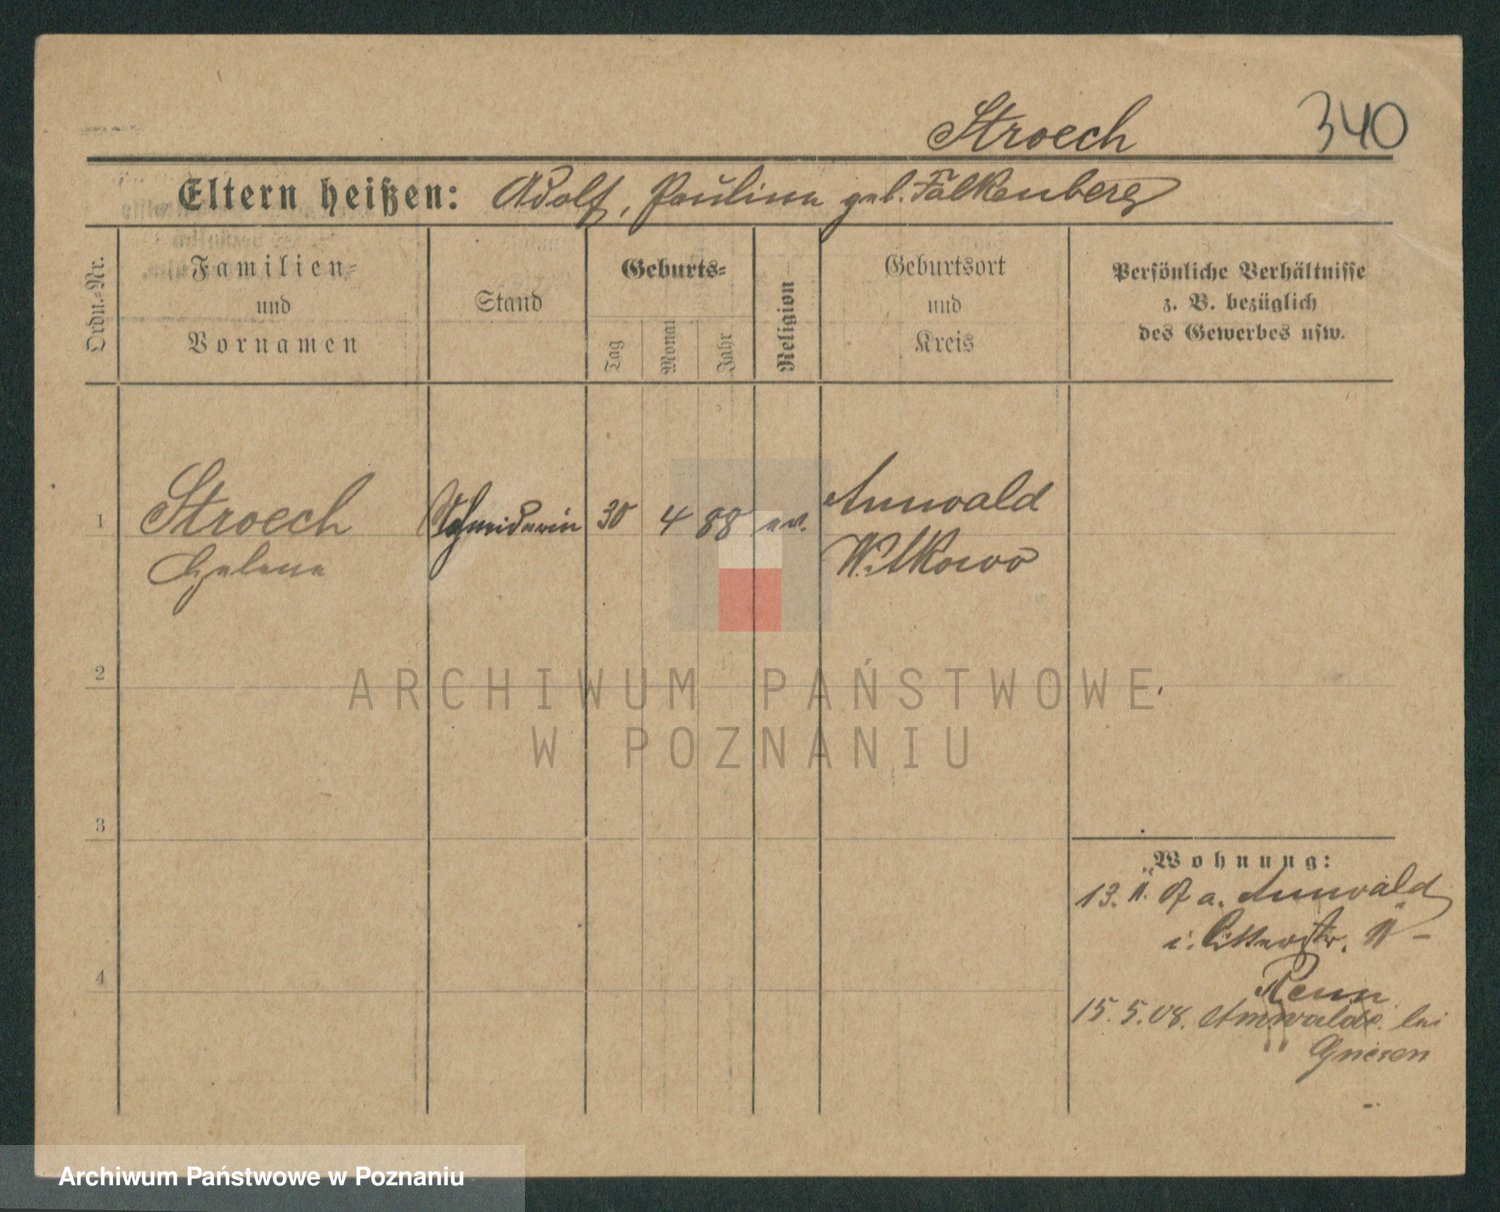 Stroech
340
Eltern heißen: Adolf, Paulina geb. Falkenberg
Ordn.=Nr.
Familien=
und
Vornamen
Stand
Geburts=
Tag
Monat
Jahr
Religion
Geburtsort
und
Kreis
Persönliche Verhältnisse
z. B. bezüglich
des Gewerbes usw.
1
Stroech
Helene
Schneiderin
30
4
88
ev.
Annwald
Wilkowo
2
3
4
Wohnung:
13. a. Annwald
i. Ritterstr.
Renn
15. 5. 08. Annwalde bei
Gnesen
ARCHIWUM PAŃSTWOWE
W POZNANIU
Archiwum Państwowe w Poznaniu